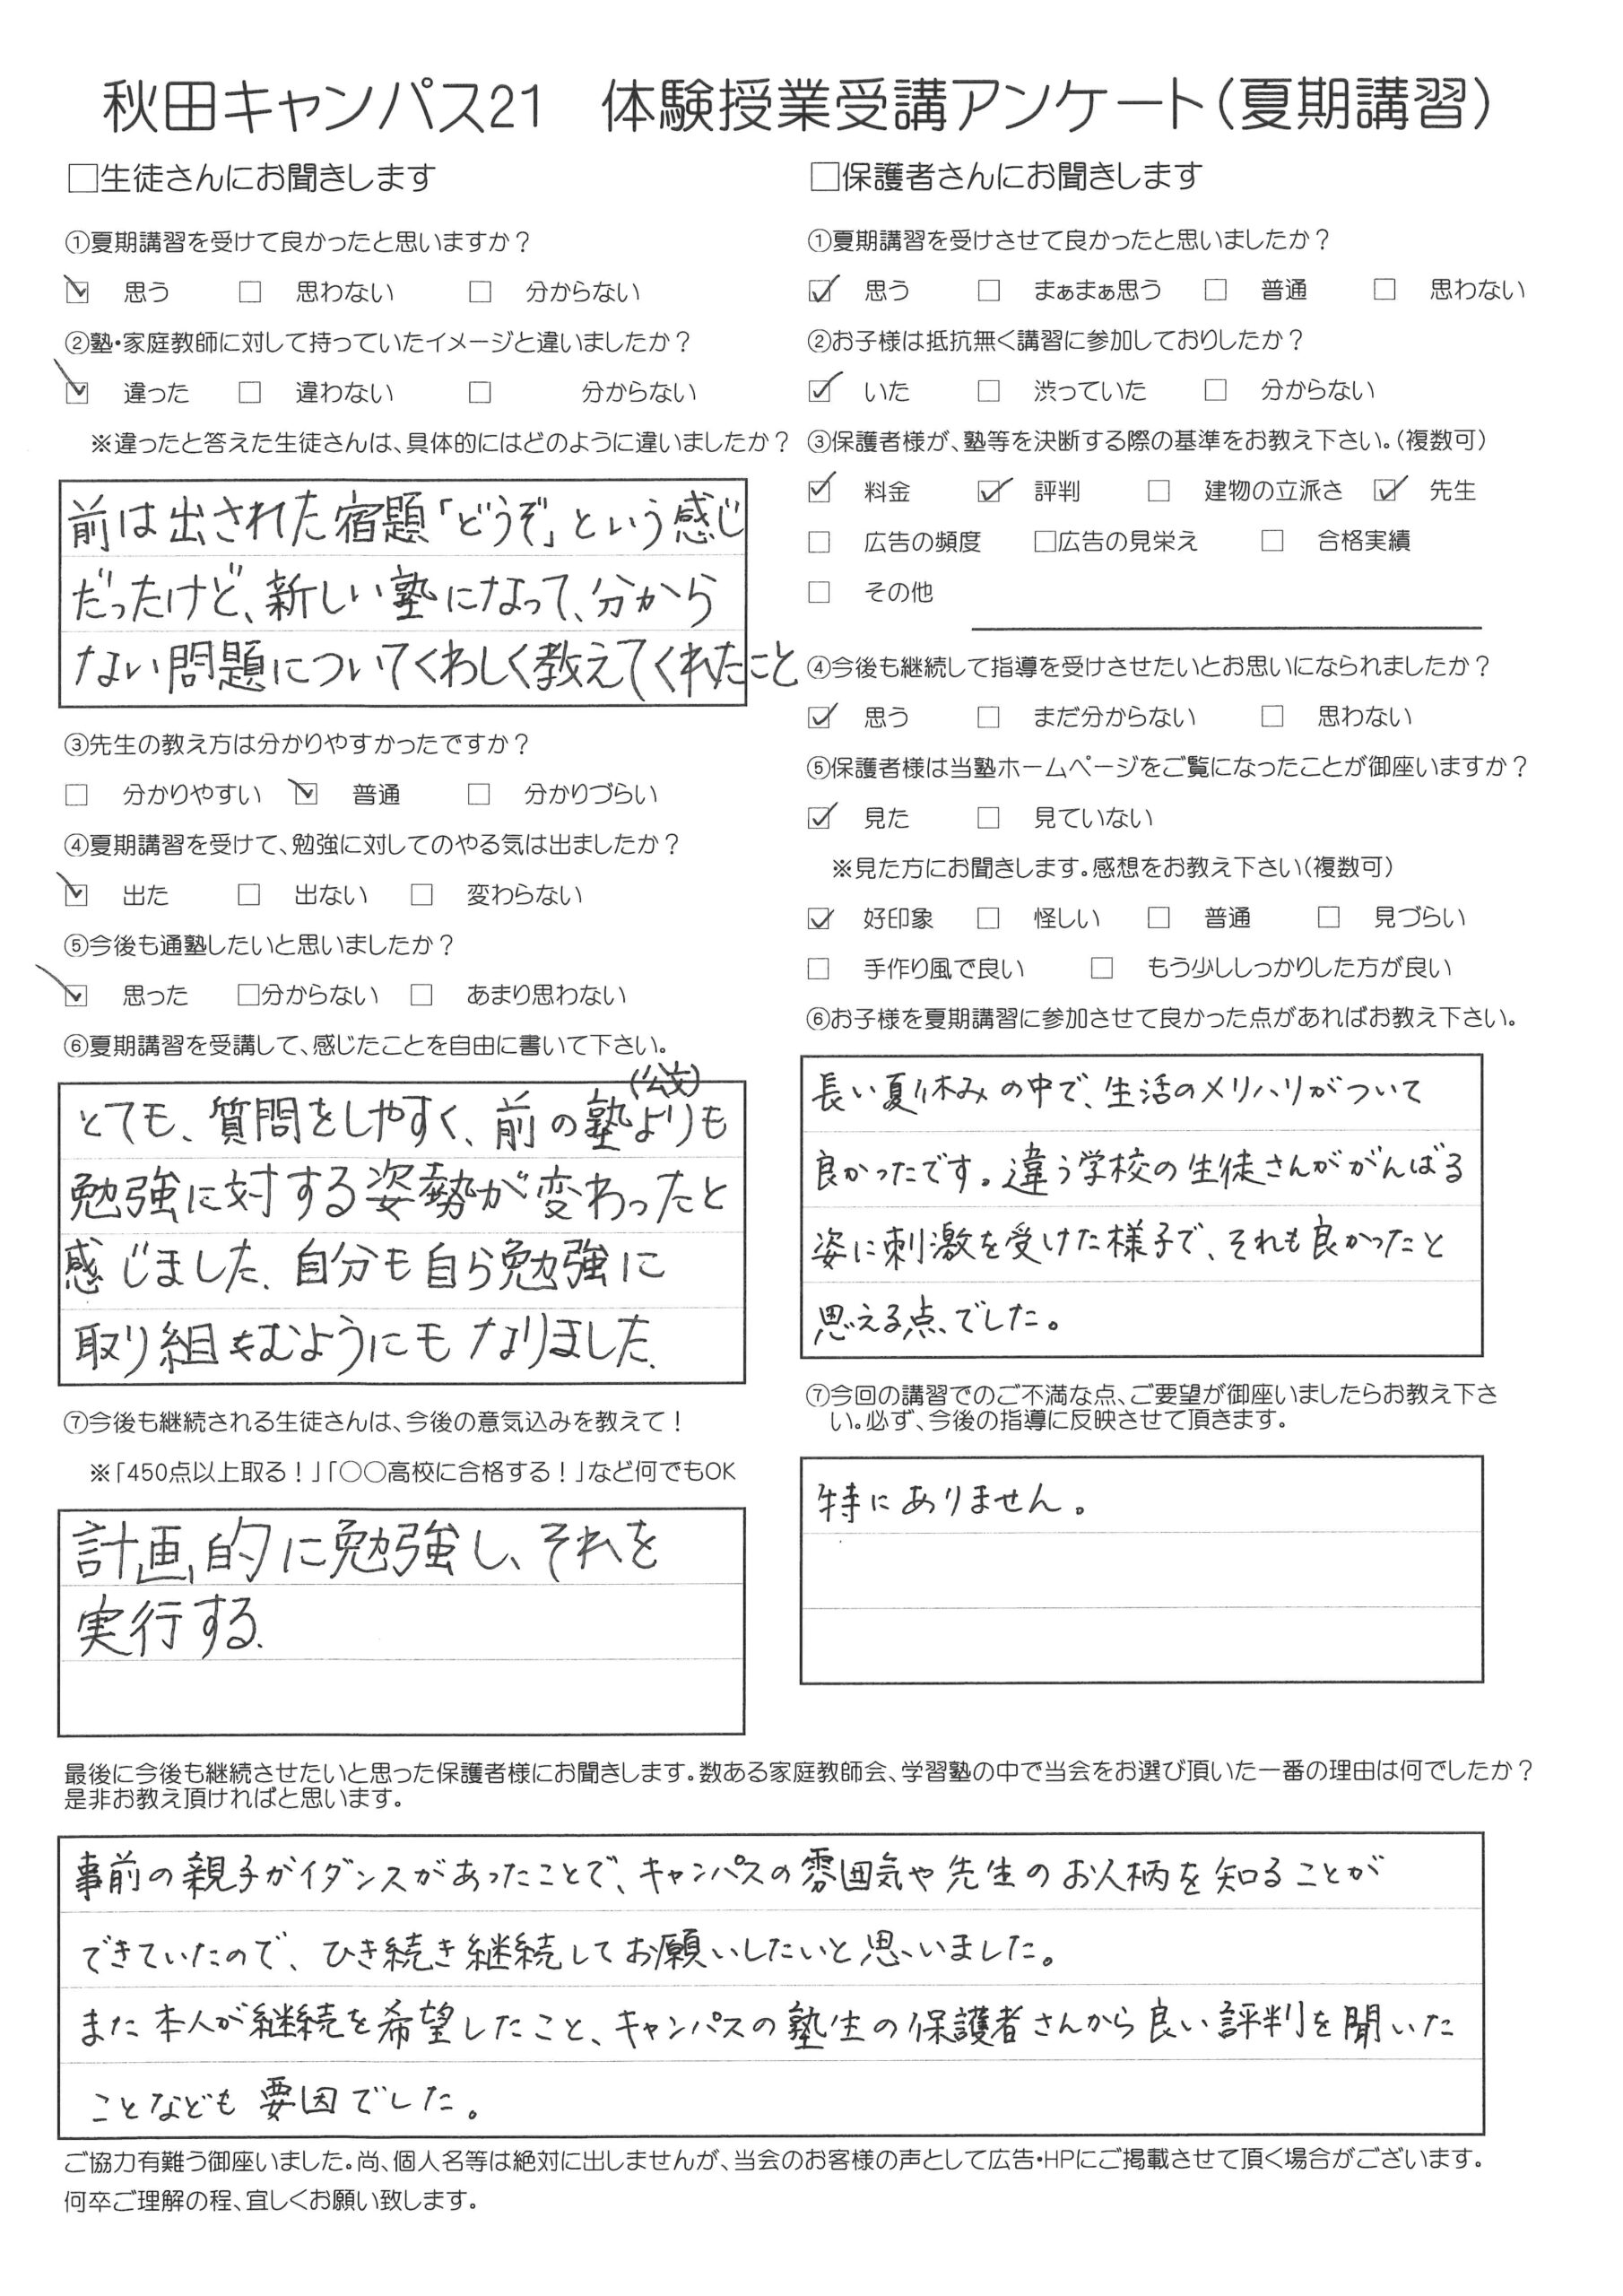 秋田キャンパス21　体験授業受講アンケート（夏期講習）
□生徒さんにお聞きします
①夏期講習を受けて良かったと思いますか？
☑ 思う □ 思わない □ 分からない
②塾・家庭教師に対して持っていたイメージと違いましたか？
☑ 違った □ 違わない □ 分からない
※違ったと答えた生徒さんは、具体的にはどのように違いましたか？
前は出された宿題「どうぞ」という感じ
だったけど、新しい塾になって、分から
ない問題についてくわしく教えてくれたこと
③先生の教え方は分かりやすかったですか？
□ 分かりやすい ☑ 普通 □ 分かりづらい
④夏期講習を受けて、勉強に対してのやる気は出ましたか？
☑ 出た □ 出ない □ 変わらない
⑤今後も通塾したいと思いましたか？
☑ 思った □分からない □ あまり思わない
⑥夏期講習を受講して、感じたことを自由に書いて下さい。
(公文)
とても、質問をしやすく、前の塾よりも
勉強に対する姿勢が変わったと
感じました。自分も自ら勉強に
取り組むようにもなりました。
⑦今後も継続される生徒さんは、今後の意気込みを教えて！
※「450点以上取る！」「○○高校に合格する！」など何でもOK
計画的に勉強し、それを
実行する。
□保護者さんにお聞きします
①夏期講習を受けさせて良かったと思いましたか？
☑ 思う □ まぁまぁ思う □ 普通 □ 思わない
②お子様は抵抗無く講習に参加しておりしたか？
☑ いた □ 渋っていた □ 分からない
③保護者様が、塾等を決断する際の基準をお教え下さい。（複数可）
☑ 料金 ☑ 評判 □ 建物の立派さ ☑ 先生
□ 広告の頻度 □広告の見栄え □ 合格実績
□ その他
④今後も継続して指導を受けさせたいとお思いになられましたか？
☑ 思う □ まだ分からない □ 思わない
⑤保護者様は当塾ホームページをご覧になったことが御座いますか？
☑ 見た □ 見ていない
※見た方にお聞きします。感想をお教え下さい（複数可）
☑ 好印象 □ 怪しい □ 普通 □ 見づらい
□ 手作り風で良い □ もう少ししっかりした方が良い
⑥お子様を夏期講習に参加させて良かった点があればお教え下さい。
長い夏休みの中で、生活のメリハリがついて
良かったです。違う学校の生徒さんががんばる
姿に刺激を受けた様子で、それも良かったと
思える点でした。
⑦今回の講習でのご不満な点、ご要望が御座いましたらお教え下さ
い。必ず、今後の指導に反映させて頂きます。
特にありません。
最後に今後も継続させたいと思った保護者様にお聞きします。数ある家庭教師会、学習塾の中で当会をお選び頂いた一番の理由は何でしたか？
是非お教え頂ければと思います。
事前の親子ガイダンスがあったことで、キャンパスの雰囲気や先生のお人柄を知ることが
できていたので、ひき続き継続してお願いしたいと思いました。
また本人が継続を希望したこと、キャンパスの塾生の保護者さんから良い評判を聞いた
ことなども要因でした。
ご協力有難う御座いました。尚、個人名等は絶対に出しませんが、当会のお客様の声として広告・HPにご掲載させて頂く場合がございます。
何卒ご理解の程、宜しくお願い致します。